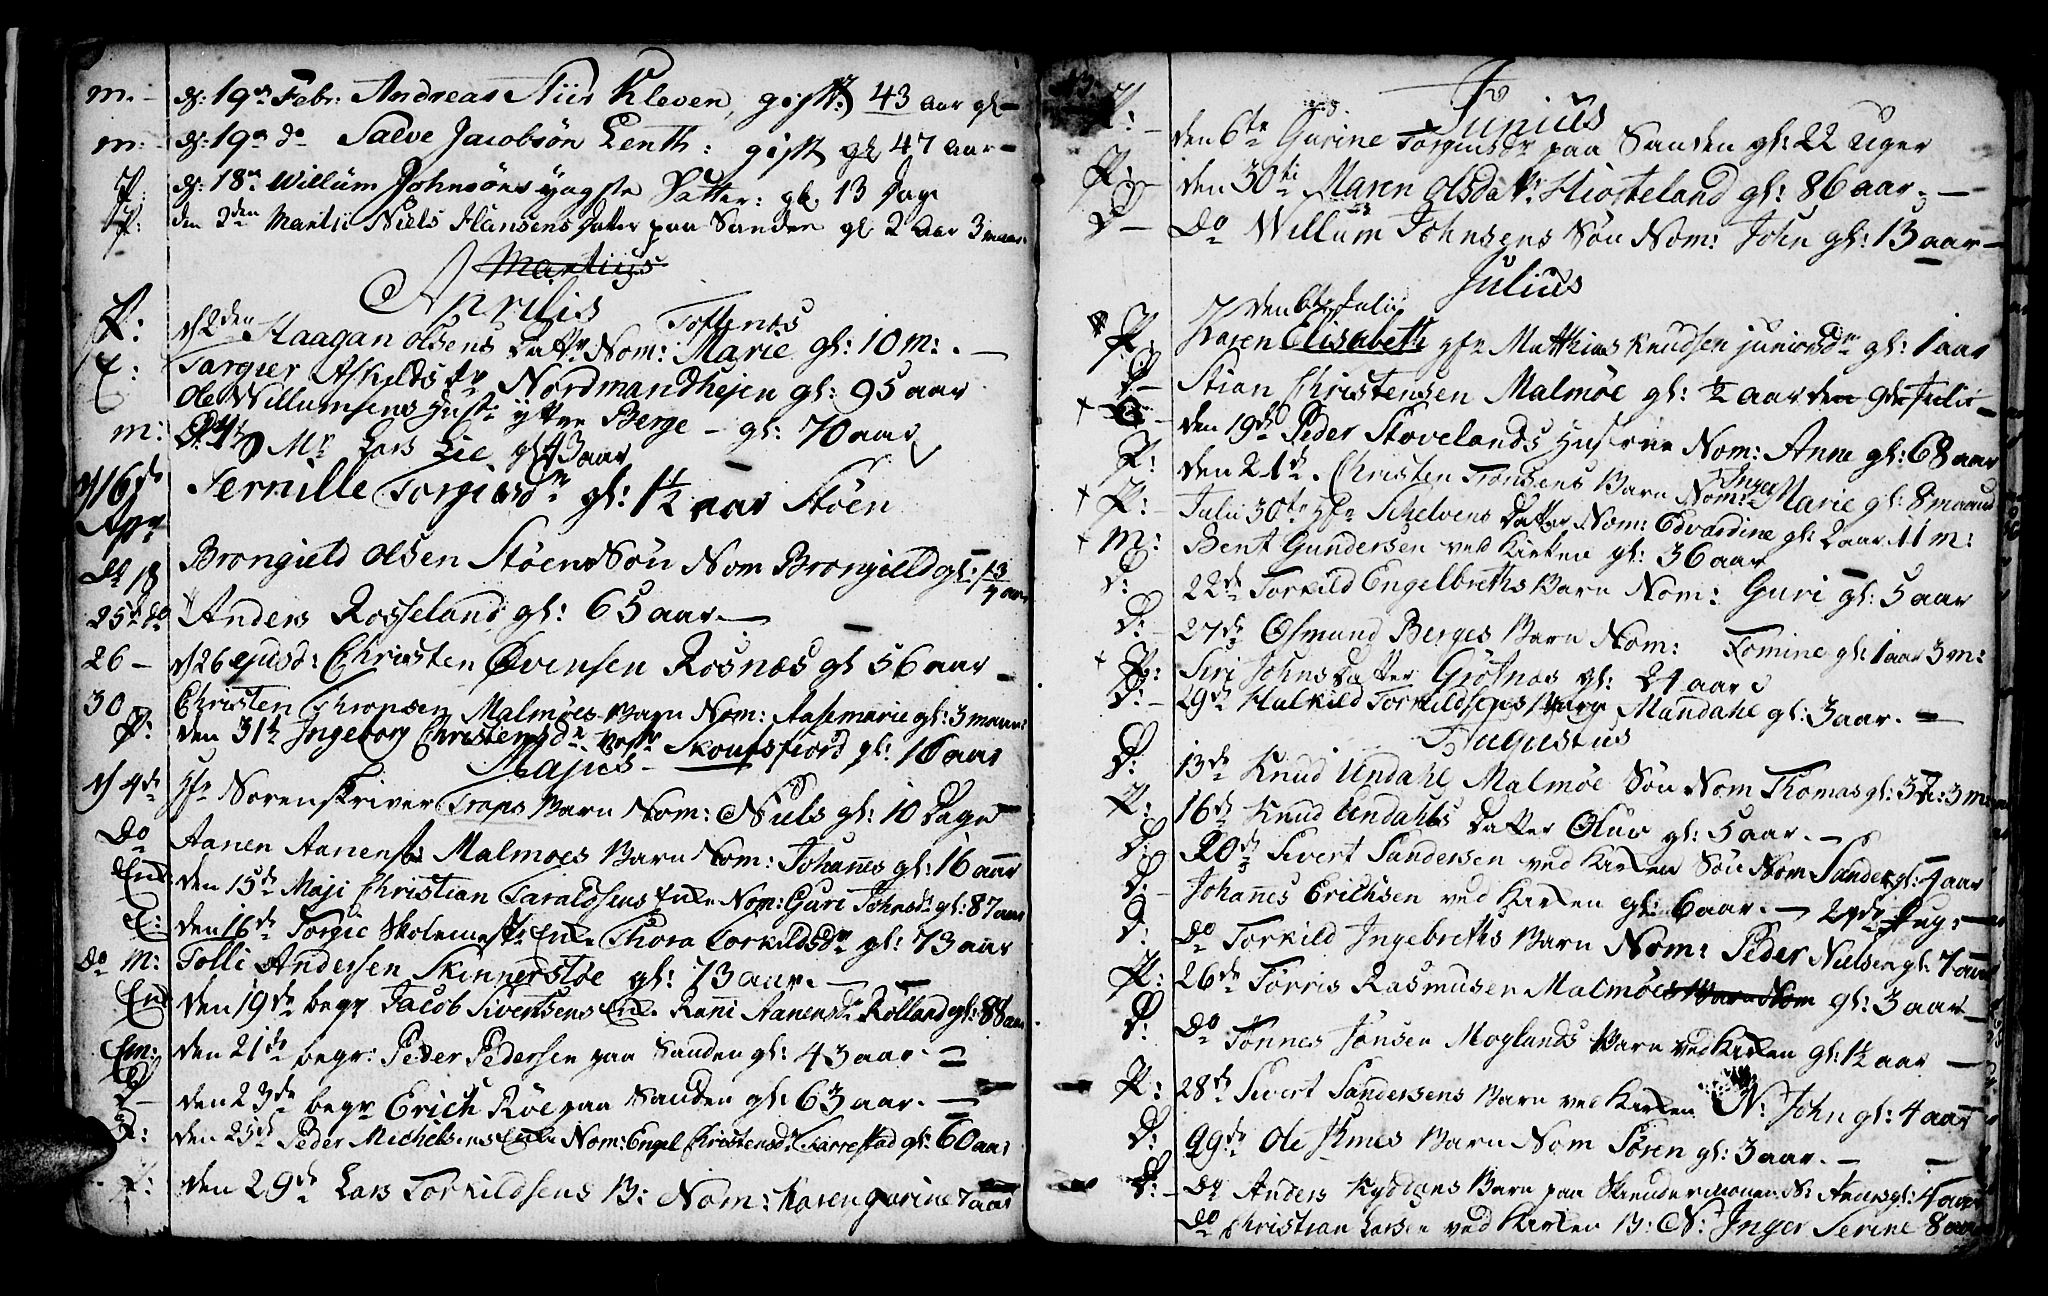 m. – d: 19de Febr: Andreas Kleven, gift 43 aar gl –
m: – d: 19de do Salve Jacobsön Lenth: gift gl 47 aar –
P: d: 18de Willum Johnsöns yngste Datter: gl. 13 Dage
P: den 2den Martii Niels Hansens Datter paa Sanden gl 2 Aar 3 maan:
Martius
Aprilis
P: d 2den Haagan Olsens Dattr Nom: Marie gl: 10 m: . – Toftenes
E: Targier Askilds Nordmandhejen gl: 95 aar
Ole Willumsens Hust: ytre Berge – gl: 70 aar
m: Mr Lars Lie gl 43 aar
d 16de Apr Pernille Torgiersdr gl: 1½ aar Stöen
Do 18 Brongield Olsen Stöens Sön Nom Brongield gl: 1 3/4 aar
25de do Anders Rosseland gl: 65 aar –
26 – d 26 ejusd: Christen Övensen Rosnæs gl 56 aar –
30 Christen Thronsen Malmöes Barn Nom: Aasemarie gl: 3 maan:
P: den 31te Ingeborg Christensdr Skoufsfiord gl: 16 aar
Majus
d 4de Hr Sorenskriver Traps Barn Nom: Niels gl: 10 Dage
Do Aanen Aanens Malmoes Barn Nom: Johanes gl: 16 aar
Enk: den 15de Maji Christian Taraldsens Enke Nom: Guri Johnsdr gl: 87 aar
E: den 16de Torgie Skolemestr Enke Thora Torkildsdr gl: 73 aar
Do M: Tolli Andersen Skinnerstöe gl: 73 aar. –
Enk den 19de begr Jacob Sivertsens Enke Rani Aanensdr Rölland gl: 88 aar
Em: den 21de begr: Peder Pedersen paa Sanden gl: 43 aar. –
D – den 23de begr Erich Röe paa Sanden gl: 63 aar. –
D: den 25de Peder Michelsens Enke Nom: Engel Christensdr Tarrestad gl: 60 aar
P: den 29de Lars Torkildsens B: Nom: Karen gurine 7 aar
Junius
P: – den 6te Gurine Torgiusdr paa Sanden gl: 22 Uger
P: – den 30te Maren Olsda Hiorteland gl: 86 aar. –
D – Do Willum Johnsens Sön Nom: John gl: 13 aar –
Julius
den 6te Julii
P: Karen Elisabeth Hr Matthias Knudsen juniorsdr gl: 1 aar
D – Stian Christensen Malmöe gl: ½ aar den 9de Julii –
den 19de Peder Stovelands Hustrue Nom: Anne gl: 68 aar
P: den 21de Christen Tronsens Barn Nom: Inger Marie gl: 8 maaned
P: – Julii 30te Hr Schelvens Datter Nom: Edvardine gl: 2 aar 11 m:
M: Bent Gundersen ved Kirken gl: 36 aar
D: 22de Torkild Engelbreths Barn Nom: Guri gl: 5 aar
D: – 27de Osmund Berges Barn Nom: Tomine gl: 1 aar 3 m:
P: Siri Johns Datter Götnæs gl: 21 aar
D: – 29de Halkild Torkildsens Barn Mandahl gl: 3 aar. –
Augustus
D: 13de Knud Undahl Malmöe Sön Nom Thomas gl: 3 A: 3 m:
P: 16de Knud Undahls Datter Oluv gl: 5 aar. –
D: 20de Sivert Sandersen ved Kirken Sön Nom Sander gl: 4 aar
D: – Johanes Erichsen ved Kirken gl: 6 aar. – 24de Aug: –
D: Do Torkild Ingebreths Barn Nom: Peder Nielsen gl: 7 aar
P: 26de Törris Rasmusen Malmöe Barn Nom gl: 3 aar –
D: Do Tönnes Jönsen Moglands Barn ved Kirken gl: 1½ aar –
P: 28de Sivert Sandersens Barn ved Kirken N: John gl: 4 aar
D: 29de Ole Barn Nom Sören gl: 3 aar. –
D: – Do Anders Barn paa N: Anders gl: 4 aar
Do Christian Larsen ved Kirken B: N: Inger Serine 8 aar